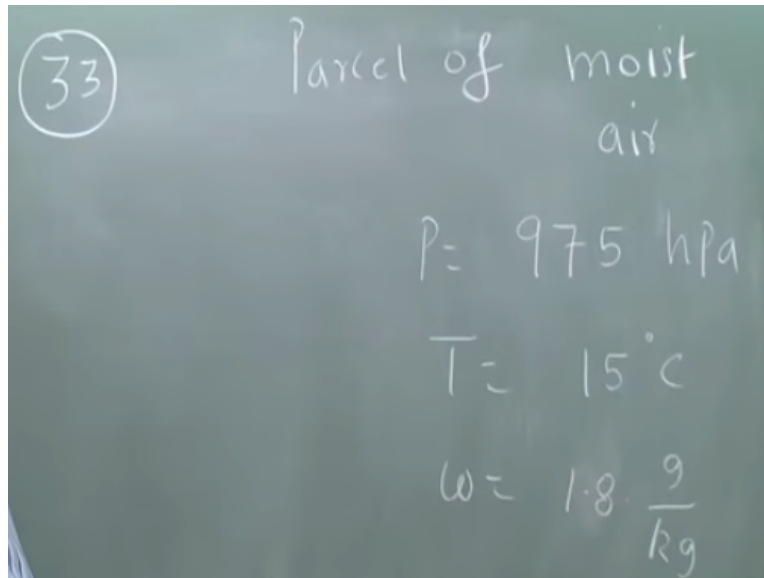 33 Parcel of moist
air
P= 975 hPa
T= 15°C
w= 1.8 g/kg